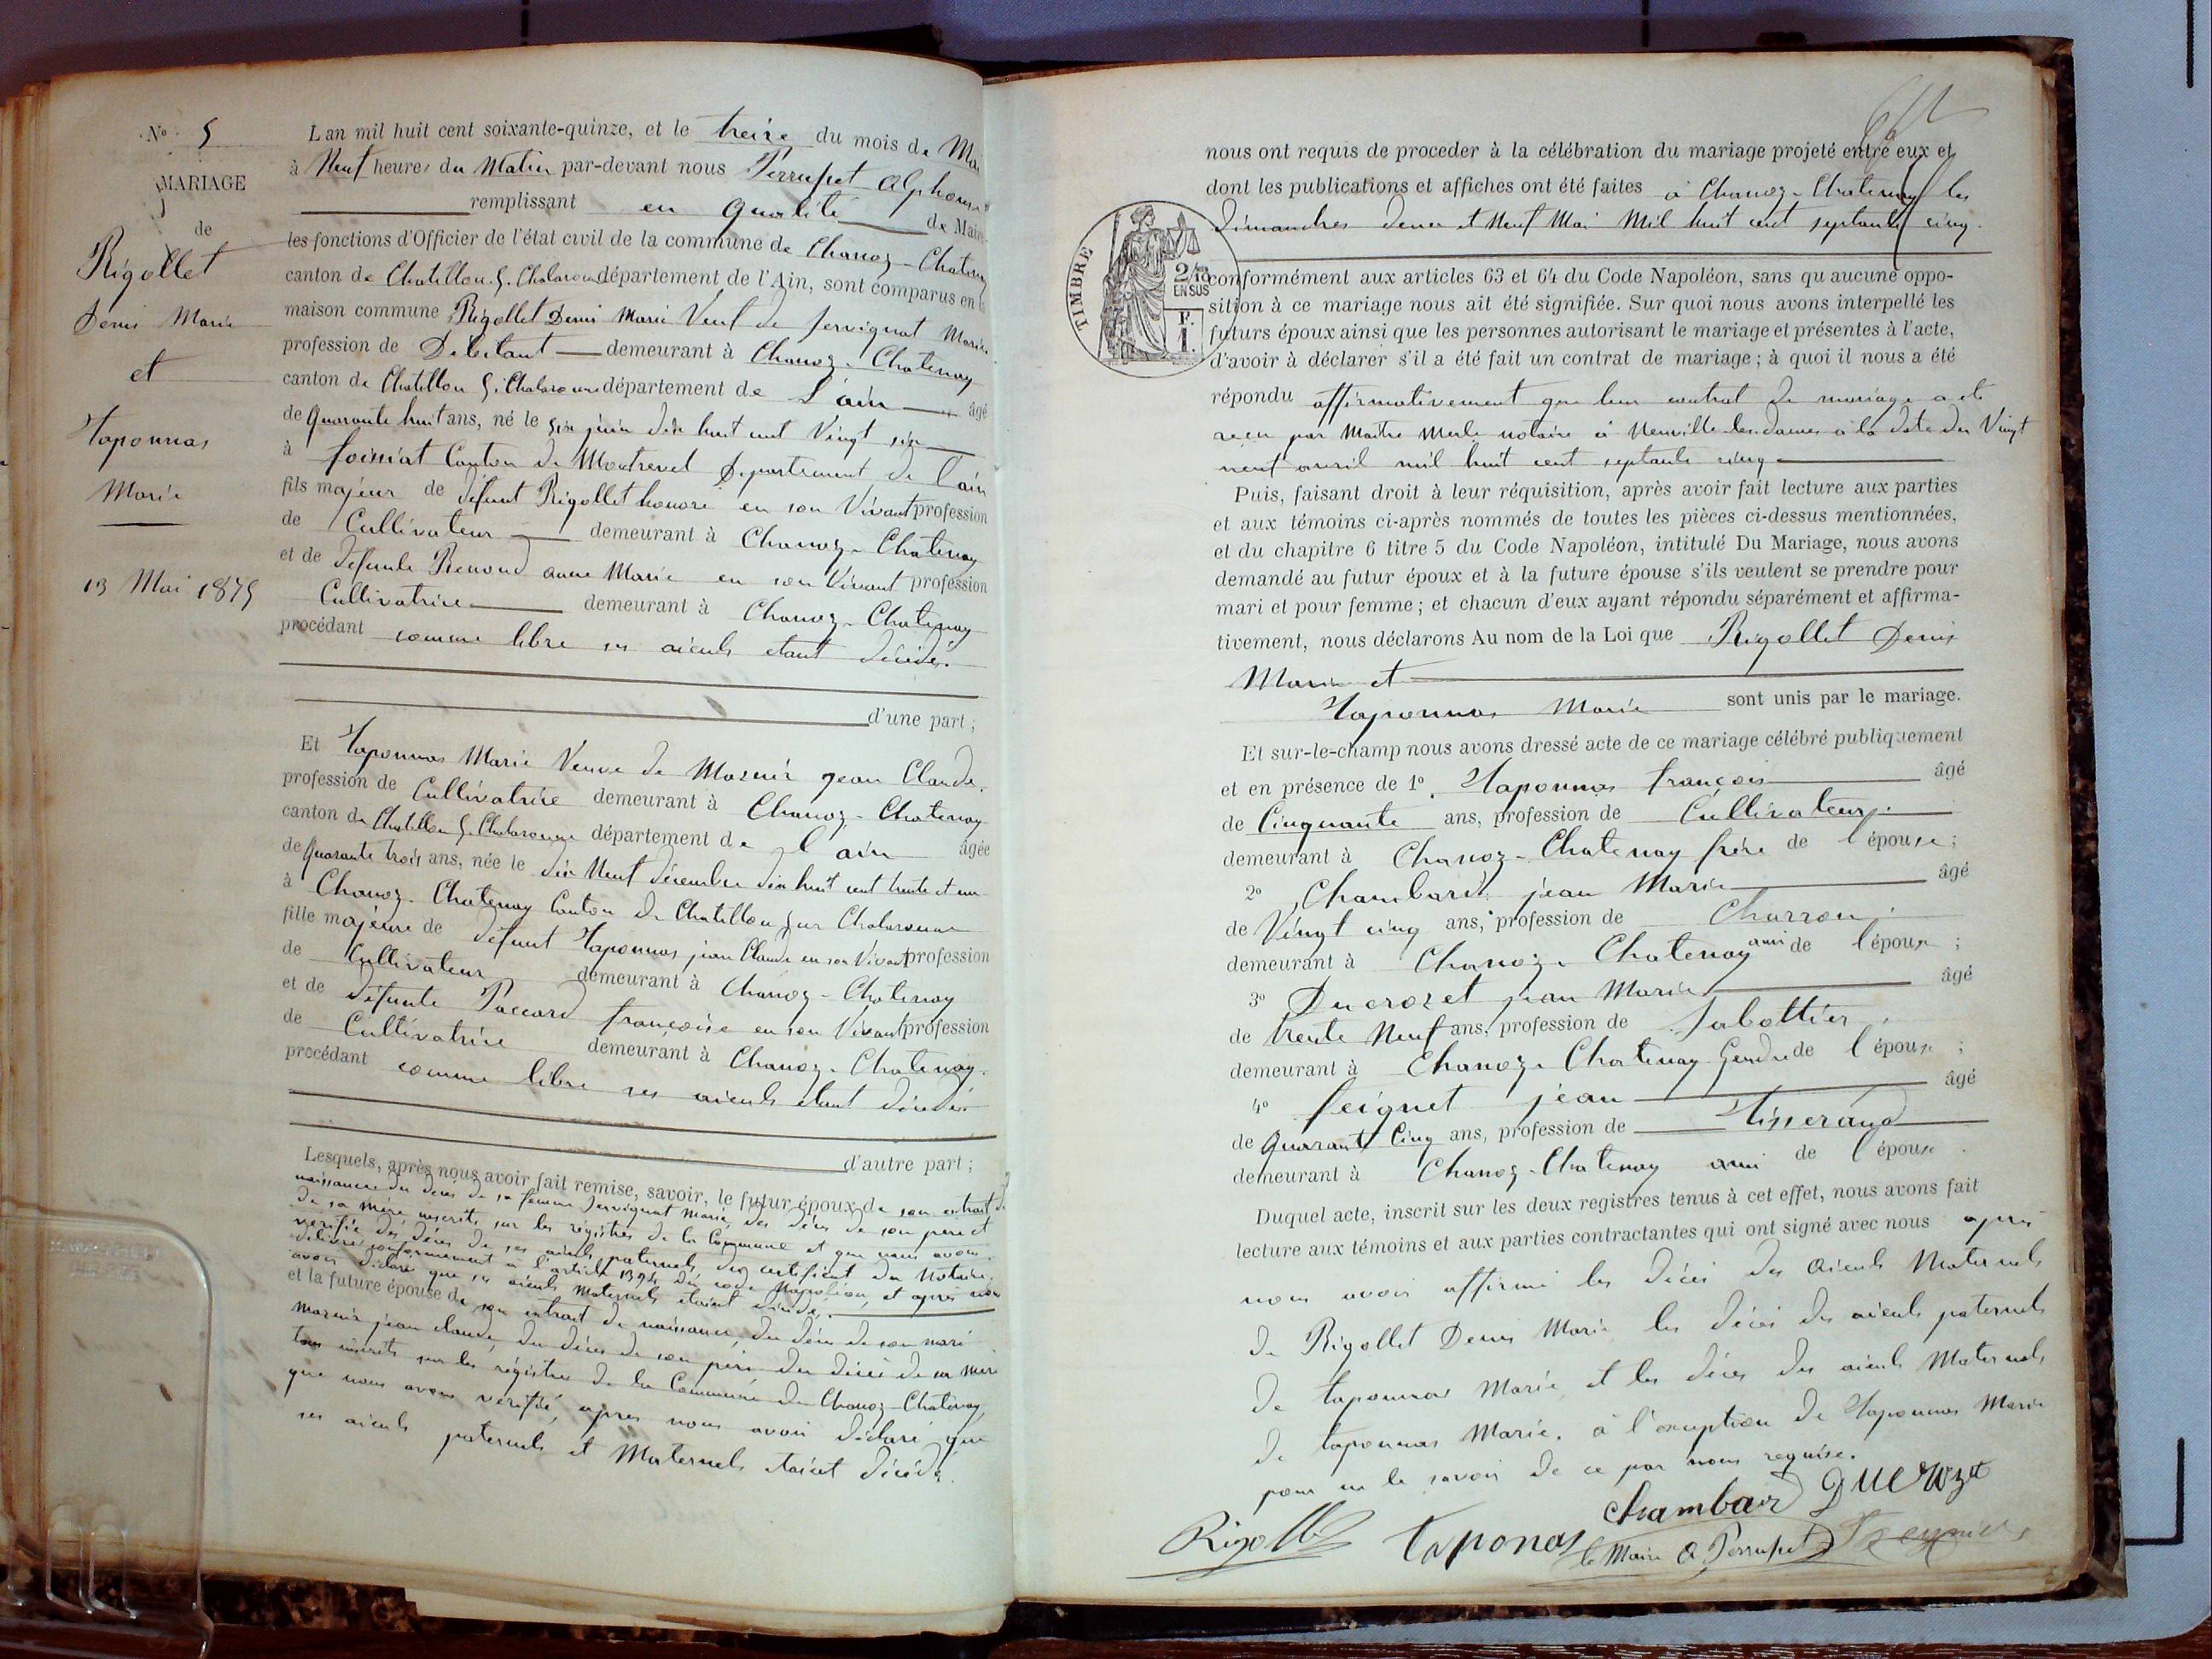 N° 5
MARIAGE
de
Rigollet
Denis Marie
et
Taponnas
Marie
13 Mai 1875
L an mil huit cent soixante-quinze, et le treize du mois de Mai
à Neuf heures du Matin par-devant nous Perruset Alphonse
remplissant en qualité de Maire
les fonctions d'Officier de l'état civil de la commune de Chanoz-Chatenay
canton de Chatillon S. Chalaronne département de l'Ain, sont comparus en la
maison commune Rigollet Denis Marie Veuf de Servignat Marie
profession de Débitant demeurant à Chanoz-Chatenay
canton de Chatillon S. Chalaronne département de L'ain âgé
de Quarante huit ans, né le six juin dix huit cent Vingt six
à foissiat Canton de Montrevel Département de l'ain
fils majeur de défunt Rigollet honoré en son Vivant profession
de Cultivateur demeurant à Chanoz-Chatenay
et de défunte Renoud anne Marie en son Vivant profession
Cultivatrice demeurant à Chanoz-Chatenay
procédant comme libre ses aieuls étant décédés.
d'une part ;
Et Taponnas Marie Veuve de Masnir jean Claude.
profession de Cultivatrice demeurant à Chanoz-Chatenay
canton de Chatillon S. Chalaronne département de l'ain âgée
de Quarante trois ans, née le dix Neuf décembre dix huit cent trente et un
à Chanoz-Chatenay Canton de Chatillon sur Chalaronne
fille majeure de défunt Taponnas jean Claude en son Vivant profession
de Cultivateur demeurant à Chanoz-Chatenay
et de défunte Paccard françoise en son Vivant profession
de Cultivatrice demeurant à Chanoz-Chatenay.
procédant comme libre ses aieuls étant décédés
d'autre part ;
Lesquels, après nous avoir fait remise, savoir, le futur époux de son extrait de
naissance du décès de sa femme Servignat Marie, des décès de son père et
de sa mère inscrits sur les régistres de la Commune et que nous avons
vérifié, des décès de ses aieuls paternels, du certificat du Notaire
délivré conformément à l'article 1394 du code Napoléon, et après nous
avoir déclaré que ses aieuls Maternels étaient décédés,
et la future épouse de son extrait de naissance, du décès de son mari
Masnir jean claude, du décès de son père du décès de sa mère
tous inscrits sur les régistres de la Commune de Chanoz-Chatenay,
que nous avons vérifié, après nous avoir déclaré que
ses aieuls paternels et Maternels étaient décédés.
nous ont requis de proceder à la célébration du mariage projeté entre eux et
dont les publications et affiches ont été faites à Chanoz-Chatenay les
dimanches deux et Neuf Mai Mil huit cent septante cinq.
TIMBRE
2/10 EN SUS
F. 1.
conformément aux articles 63 et 64 du Code Napoléon, sans qu aucune oppo-
sition à ce mariage nous ait été signifiée. Sur quoi nous avons interpellé les
futurs époux ainsi que les personnes autorisant le mariage et présentes à l'acte,
d'avoir à déclarer s'il a été fait un contrat de mariage ; à quoi il nous a été
répondu affirmativement que leur contrat de mariage a été
reçu par Maître Merle notaire à Neuville-les-dames à la date du Vingt
neuf avril mil huit cent septante cinq
Puis, faisant droit à leur réquisition, après avoir fait lecture aux parties
et aux témoins ci-après nommés de toutes les pièces ci-dessus mentionnées,
et du chapitre 6 titre 5 du Code Napoléon, intitulé Du Mariage, nous avons
demandé au futur époux et à la future épouse s'ils veulent se prendre pour
mari et pour femme ; et chacun d'eux ayant répondu séparément et affirma-
tivement, nous déclarons Au nom de la Loi que Rigollet Denis
Marie et
Taponnas Marie sont unis par le mariage.
Et sur-le-champ nous avons dressé acte de ce mariage célébré publiquement
et en présence de 1° Taponnas françois âgé
de Cinquante ans, profession de Cultivateur
demeurant à Chanoz-Chatenay frère de l'épouse ;
2° Chambard jean Marie âgé
de Vingt cinq ans, profession de Charron
demeurant à Chanoz-Chatenay ami de l'épouse ;
3° Ducrozet jean Marie âgé
de trente Neuf ans, profession de Sabottier
demeurant à Chanoz-Chatenay Gendre de l'épouse ;
4° feignet jean âgé
de Quarante Cinq ans, profession de Tisserand
demeurant à Chanoz-Chatenay ami de l'épouse
Duquel acte, inscrit sur les deux registres tenus à cet effet, nous avons fait
lecture aux témoins et aux parties contractantes qui ont signé avec nous après
nous avoir affirmé les décès des aieuls Maternels
de Rigollet Denis Marie, les décès des aieuls paternels
de taponnas Marie, et les décès des aieuls Maternels
de taponnas Marie. à l'exception de Taponnas Marie
pour ne le savoir de ce par nous requise.
Chambard Ducrozet
Rigollet taponas le Maire A. Perruset